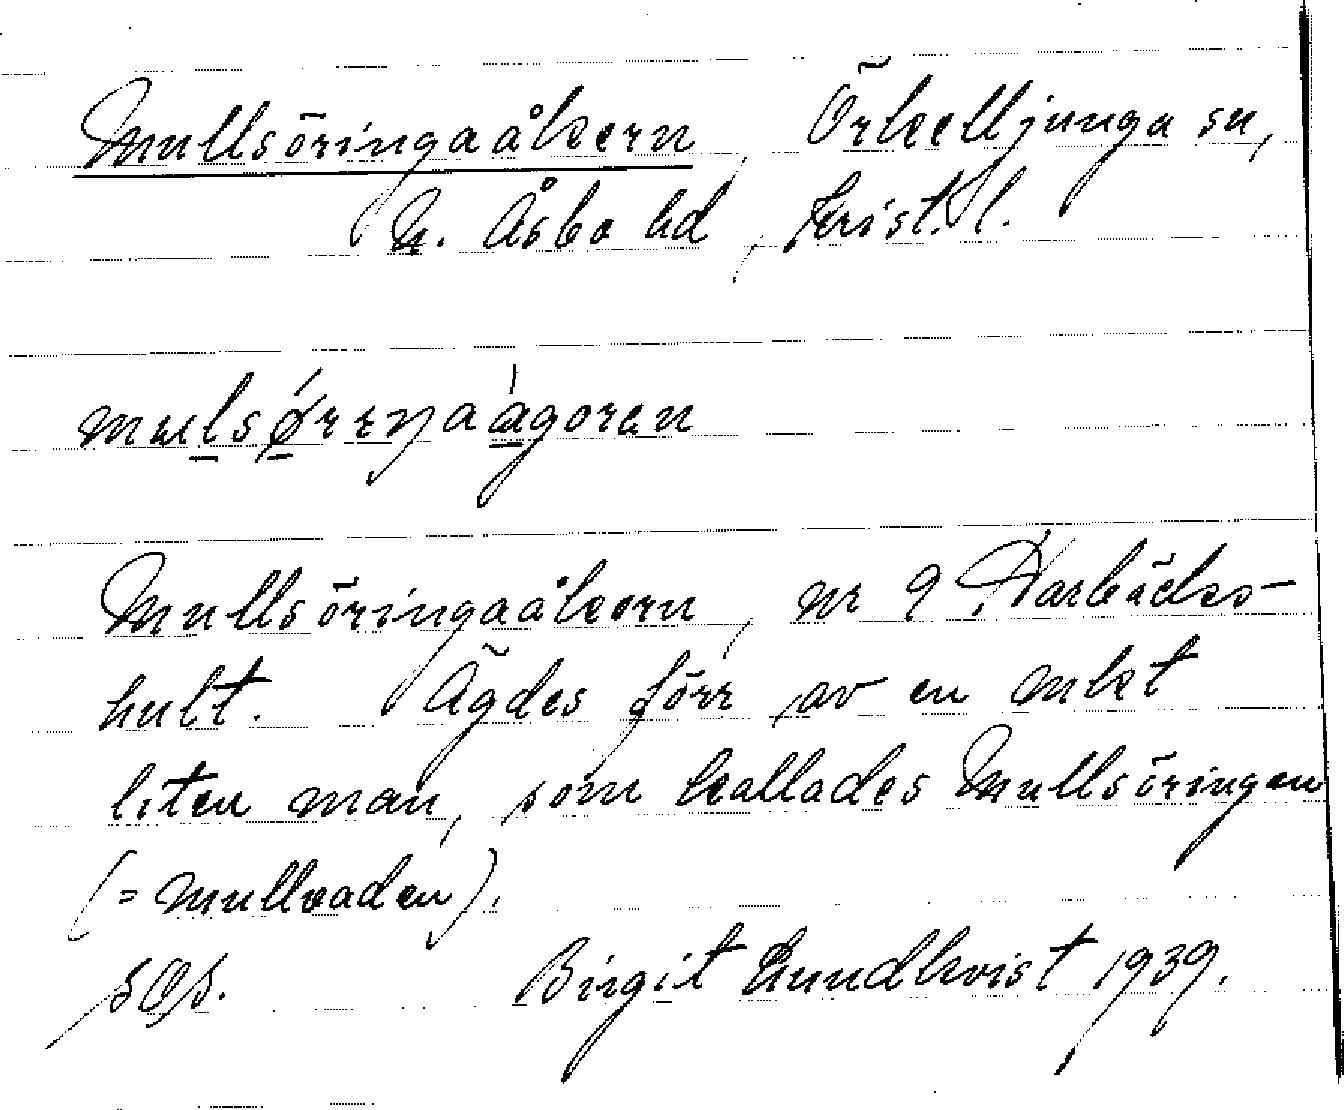 Mullsöringaåkern, Örkelljunga sn,
N. Åsbo hd, Krist. l.
mulsǿrıŋaágorən
Mullsöringaåkern, nr 9 Harbäcks-
hult. Ägdes förr av en mkt
liten man, som kallades Mullsöringen
(= mullvaden).
SOS. Birgit Lundkvist 1939.